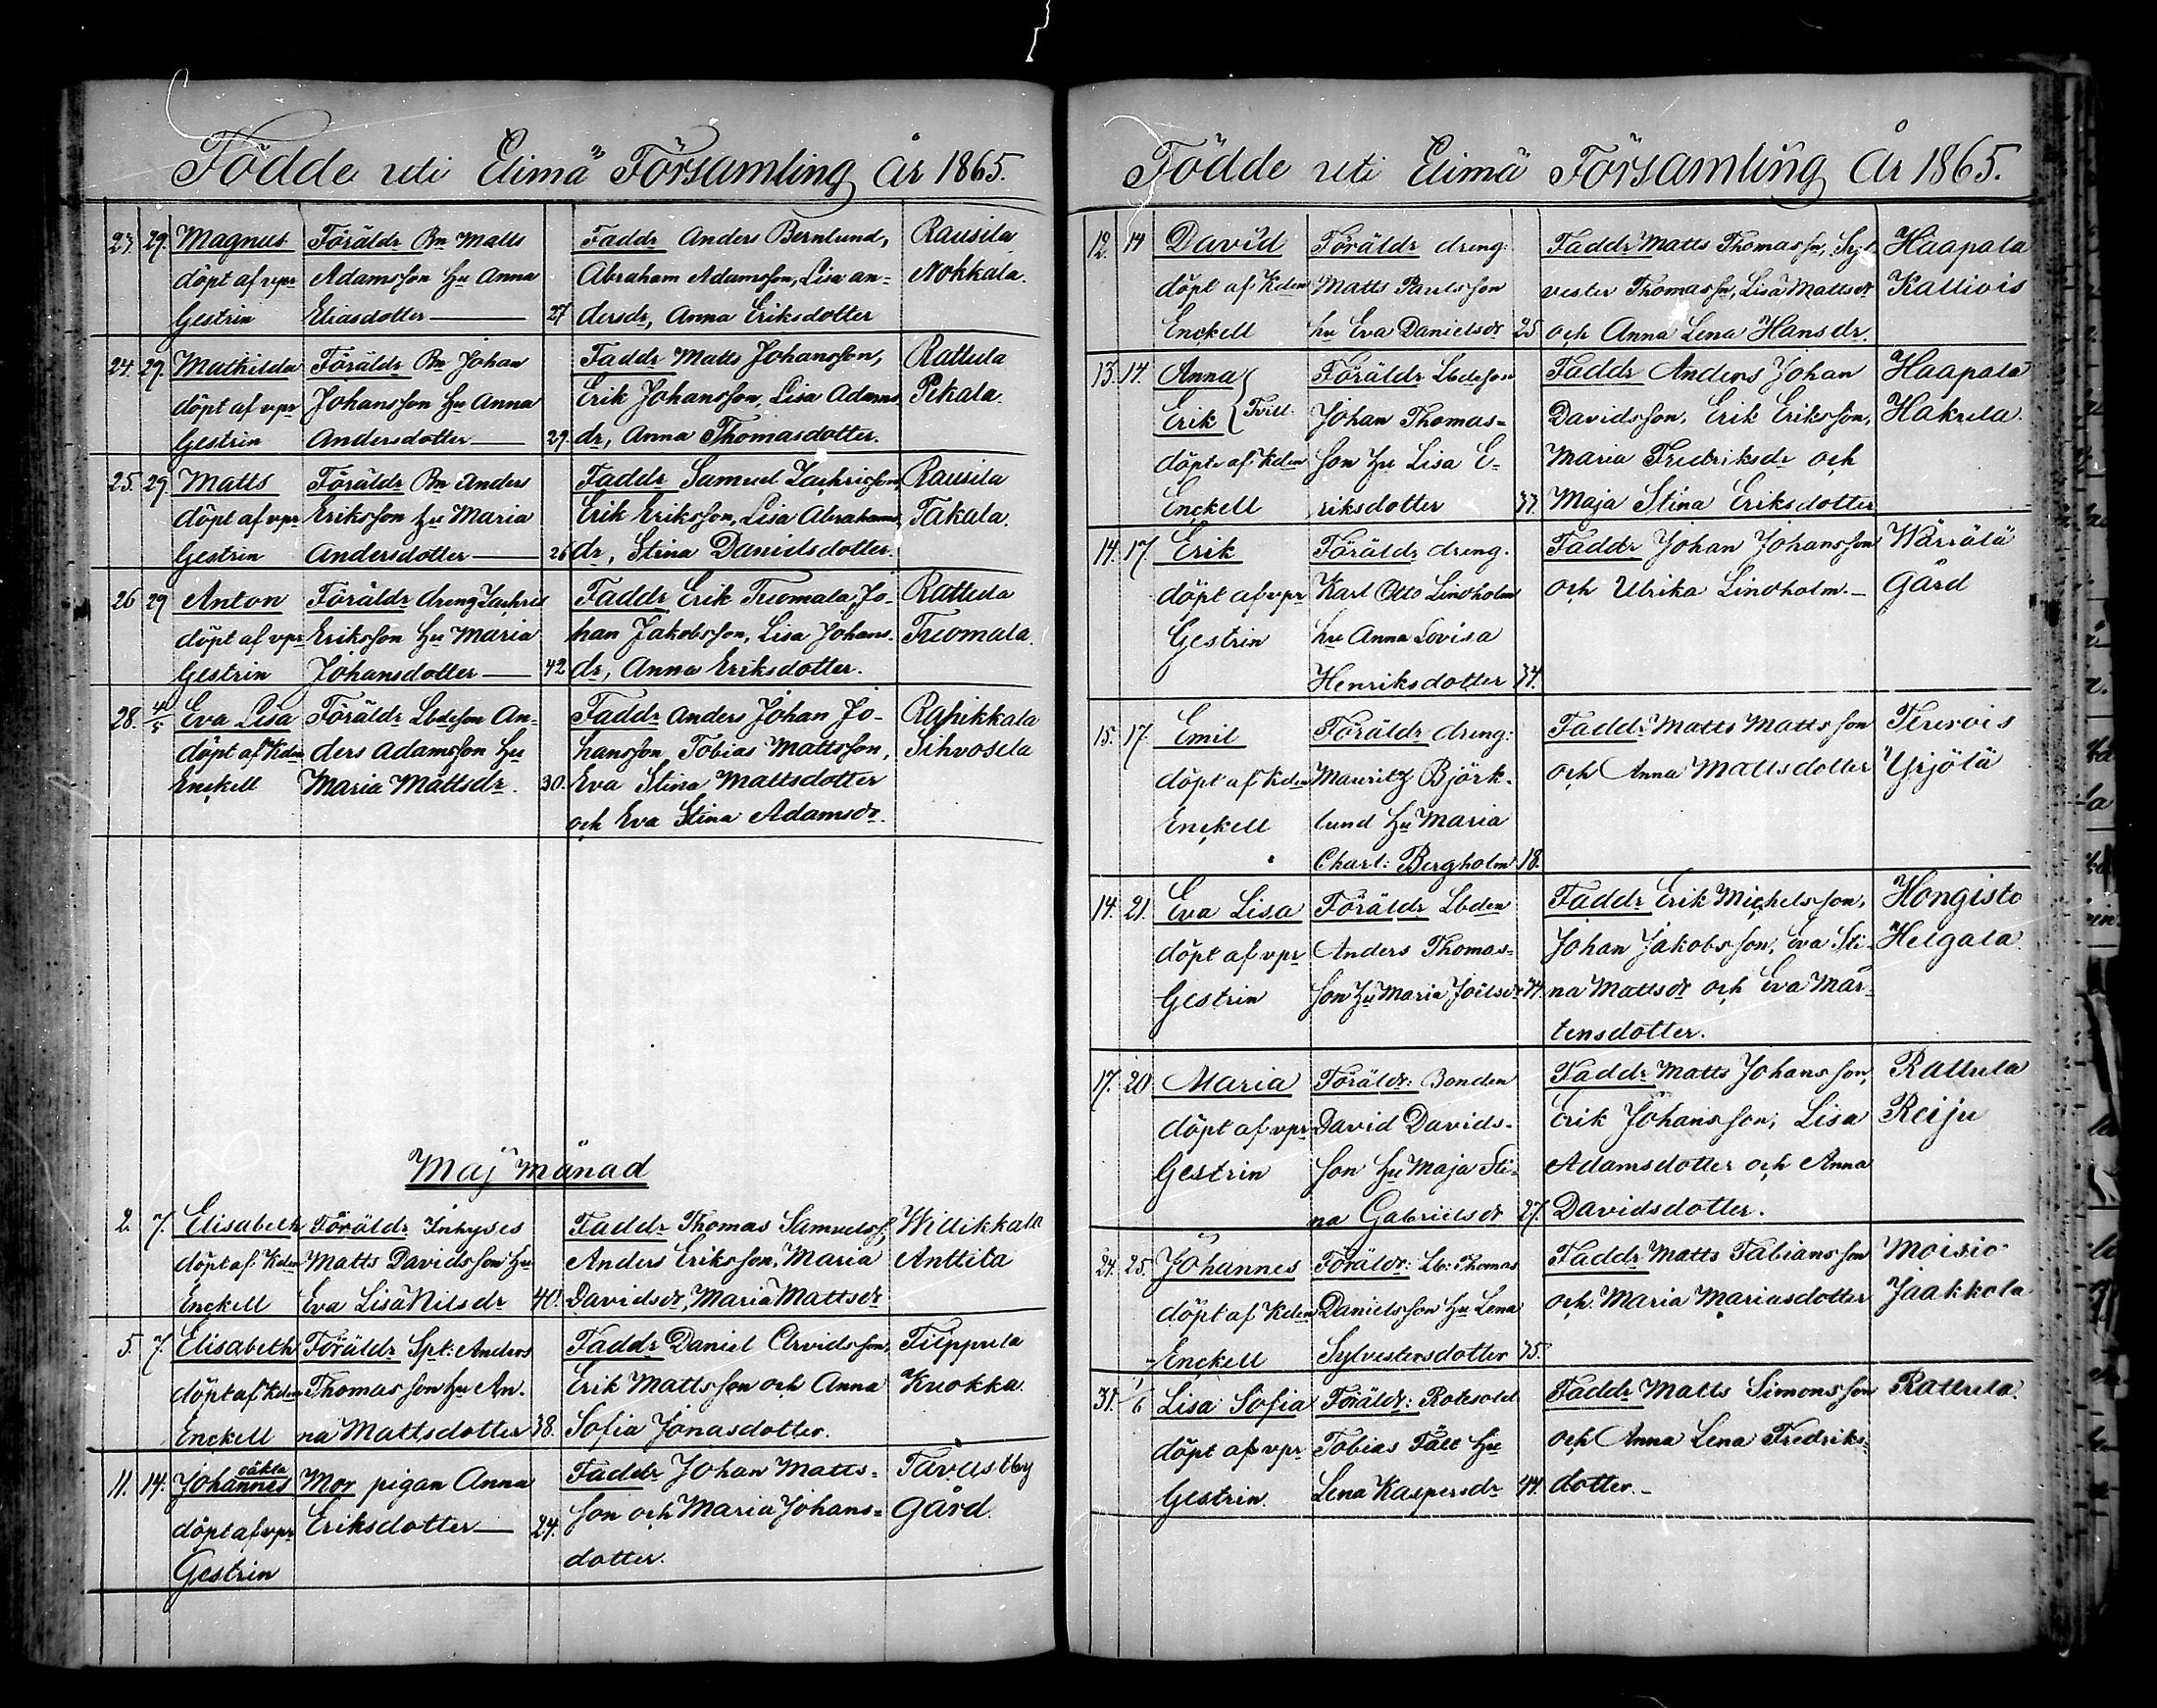 Födde uti Elimä Församling År 1865.
23. 29. Magnus Föräldr Bn Matts Faddr Anders Bernlund, Rausila
döpt af vpr Adamsson hu Anna Abraham Adamsson, Lisa an- Nokkala.
Gestrin Eliasdotter 27 dersdr, Anna Eriksdotter
24. 29. Mathilda Föräldr Bn Johan Faddr Matts Johansson, Rattula
döpt af vpr Johansson hu Anna Erik Johansson, Lisa Adams Pekala.
Gestrin Andersdotter 29. dr, Anna Thomasdotter.
25. 29 Matts Föräldr Bn Anders Faddr Samuel Zachrisson, Rausila
döpt af vpr Eriksson hu Maria Erik Eriksson, Lisa Abrahams Takala.
Gestrin Andersdotter 26 dr, Stina Danielsdotter.
26 29 Anton Föräldr dreng Zachris Faddr Erik Tuomala, Jo- Rattula
döpt af vpr Eriksson hu Maria han Jakobsson, Lisa Johans- Tuomala.
Gestrin Johansdotter 42 dr, Anna Eriksdotter.
28. 4/5 Eva Lisa Föräldr Lbdeson An- Faddr Anders Johan Jo- Rahikkala
döpt af Kden ders Adamsson hu hansson, Tobias Mattsson, Sihvosela
Enckell Maria Mattsdr. 30. Eva Stina Mattsdotter
och Eva Stina Adamsdr.
Maj månad
2. 7. Elisabeth Föräldr Inhyses Faddr Thomas Samuelss Willikkala
döpt af Kden Matts Davidsson hu Anders Eriksson, Maria Anttila
Enckell Eva Lisa Nilsdr 40. Davidsdr, Maria Mattsdr
5. 7. Elisabeth Föräldr Spt: Anders Faddr Daniel Arvidsson, Tilppula
döpt af Kden Thomasson hu An- Erik Mattsson och Anna Kuokka.
Enckell na Mattsdotter 38. Sofia Jonasdotter.
11. 14. oäkta Johannes Mor pigan Anna Faddr Johan Matts- Tavastby
döpt af vpr Eriksdotter 24. son och Maria Johans- Gård.
Gestrin dotter.
Födde uti Elimä Församling År 1865.
12. 14 David Föräldr dreng: Faddr Matts Thomassn, Syl- Haapala
döpt af Kden Matts Paulsson vester Thomassn, Lisa Mattsdr Kallivis
Enckell hu Eva Danielsdr 25 och Anna Lena Hansdr.
13. 14. Anna Föräldr Lbdeson Faddr Anders Johan Haapala
Erik Tvill. Johan Thomas- Davidsson, Erik Eriksson, Hakula.
döpte af Kden son hu Lisa E- Maria Fredriksdr och
Enckell riksdotter 33 Maja Stina Eriksdotter
14. 17. Erik Föräldr dreng. Faddr Johan Johansson Wärälä
döpt af vpr Karl Otto Lindholm och Ulrika Lindholm. Gård
Gestrin hu Anna Lovisa
Henriksdotter 34.
15. 17. Emil Föräldr dreng: Faddr Matts Mattsson Terevis
döpt af Kden Mauritz Björk- och Anna Mattsdotter Yrjölä
Enckell lund hu Maria
Charl: Bergholm 18.
14. 21. Eva Lisa Föräldr Lbden Faddr Erik Michelsson, Hongisto
döpt af vpr Anders Thomas- Johan Jakobsson, Eva Sti- Helgala.
Gestrin son hu Maria Joelsdr 44. na Mattsdr och Eva Mår-
tensdotter.
17. 20 Maria Föräldr: Bonden Faddr Matts Johansson, Rattula
döpt af vpr David Davids- Erik Johansson, Lisa Reiju
Gestrin son hu Maja Sti- Adamsdotter och Anna
na Gabrielsdr 27. Davidsdotter.
24. 25. Johannes Föräldr: Lb: Thomas Faddr Matts Fabiansson Moisio
döpt af Kden Danielsson hu Lena och Maria Mariasdotter Jaakkola
Enckell Sylvestersdotter 35.
31. /6 Lisa Sofia Föräldr: Rotesold Faddr Matts Simonsson Rattula.
döpt af vpr Tobias Fält hu och Anna Lena Fredriks-
Gestrin. Lena Kaspersdr 44. dotter.